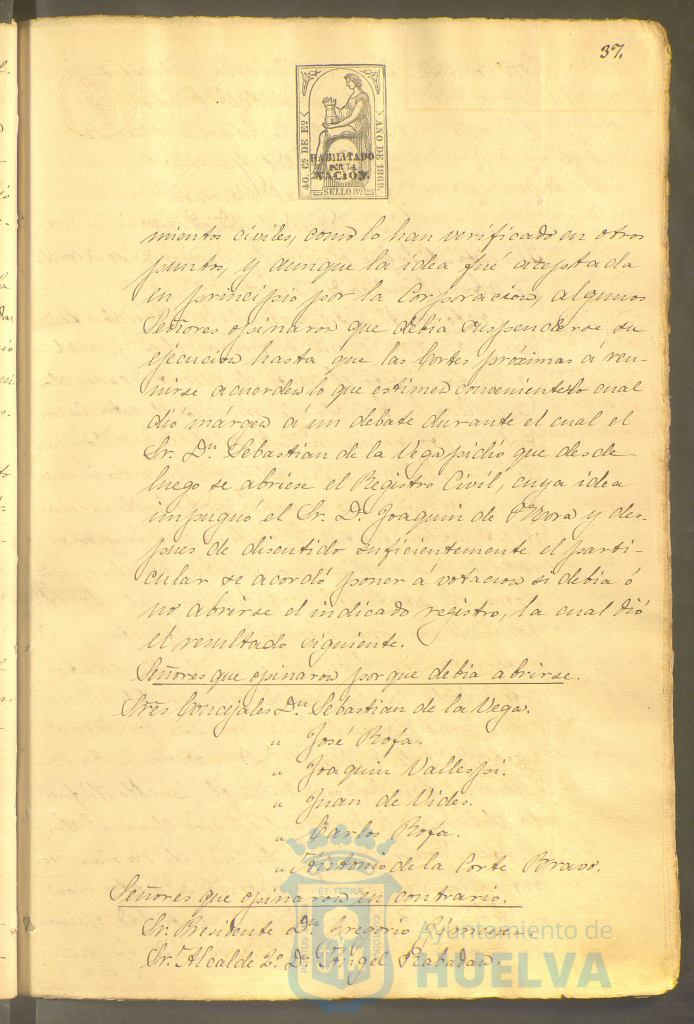 37.
40. Cs DE Eo
AÑO DE 1869.
HABILITADO
POR LA
NACION.
SELLO 8º
mientos civiles, como lo han verificado en otros
puntos, y aunque la idea fué aceptada
en principio por la Corporacion, algunos
Señores opinaron que debia suspenderse su
ejecucion hasta que las Cortes próximas á reu-
nirse acuerden lo que estimen conveniente lo cual
dio márgen á un debate durante el cual el
Sr. Dn Sebastian de la Vega pidió que desde
luego se abriese el Registro Civil, cuya idea
impugnó el Sr. D. Joaquin de Mora y des-
pues de discutido suficientemente el parti-
cular se acordó poner á votacion si debia ó
no abrirse el indicado registro, la cual dió
el resultado siguiente.
Señores que opinaron porque debia abrirse.
Sres Concejales Dn Sebastian de la Vega.
" José Rofa.
" Joaquin Vallespi.
" Juan de Vides.
" Carlos Rofa.
" Antonio de la Corte Bravo.
Señores que opinaron en contrario.
Sr. Presidente Dn Gregorio
Sr. Alcalde 2º Dn Angel Rabadan.
Ayuntamiento de
HUELVA